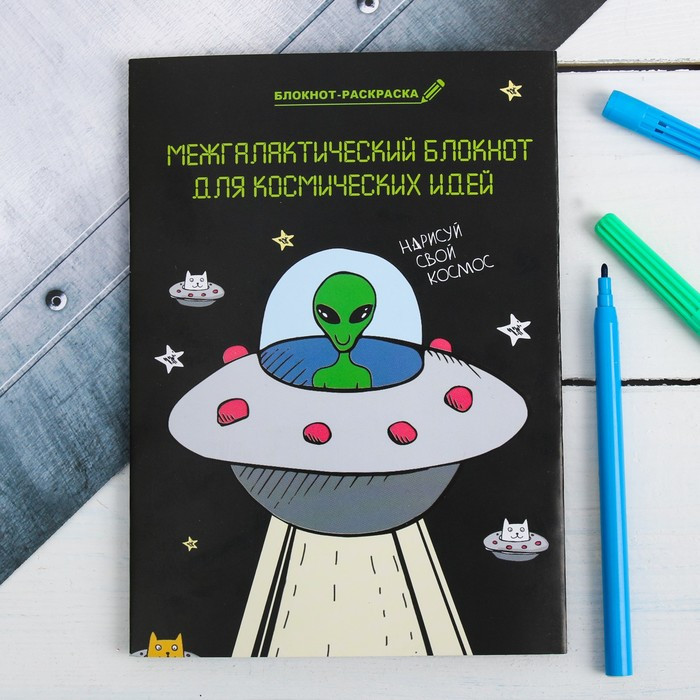 БЛОКНОТ-РАСКРАСКА
МЕЖГАЛАКТИЧЕСКИЙ БЛОКНОТ
ДЛЯ КОСМИЧЕСКИХ ИДЕЙ
НАРИСУЙ
СВОЙ
КОСМОС